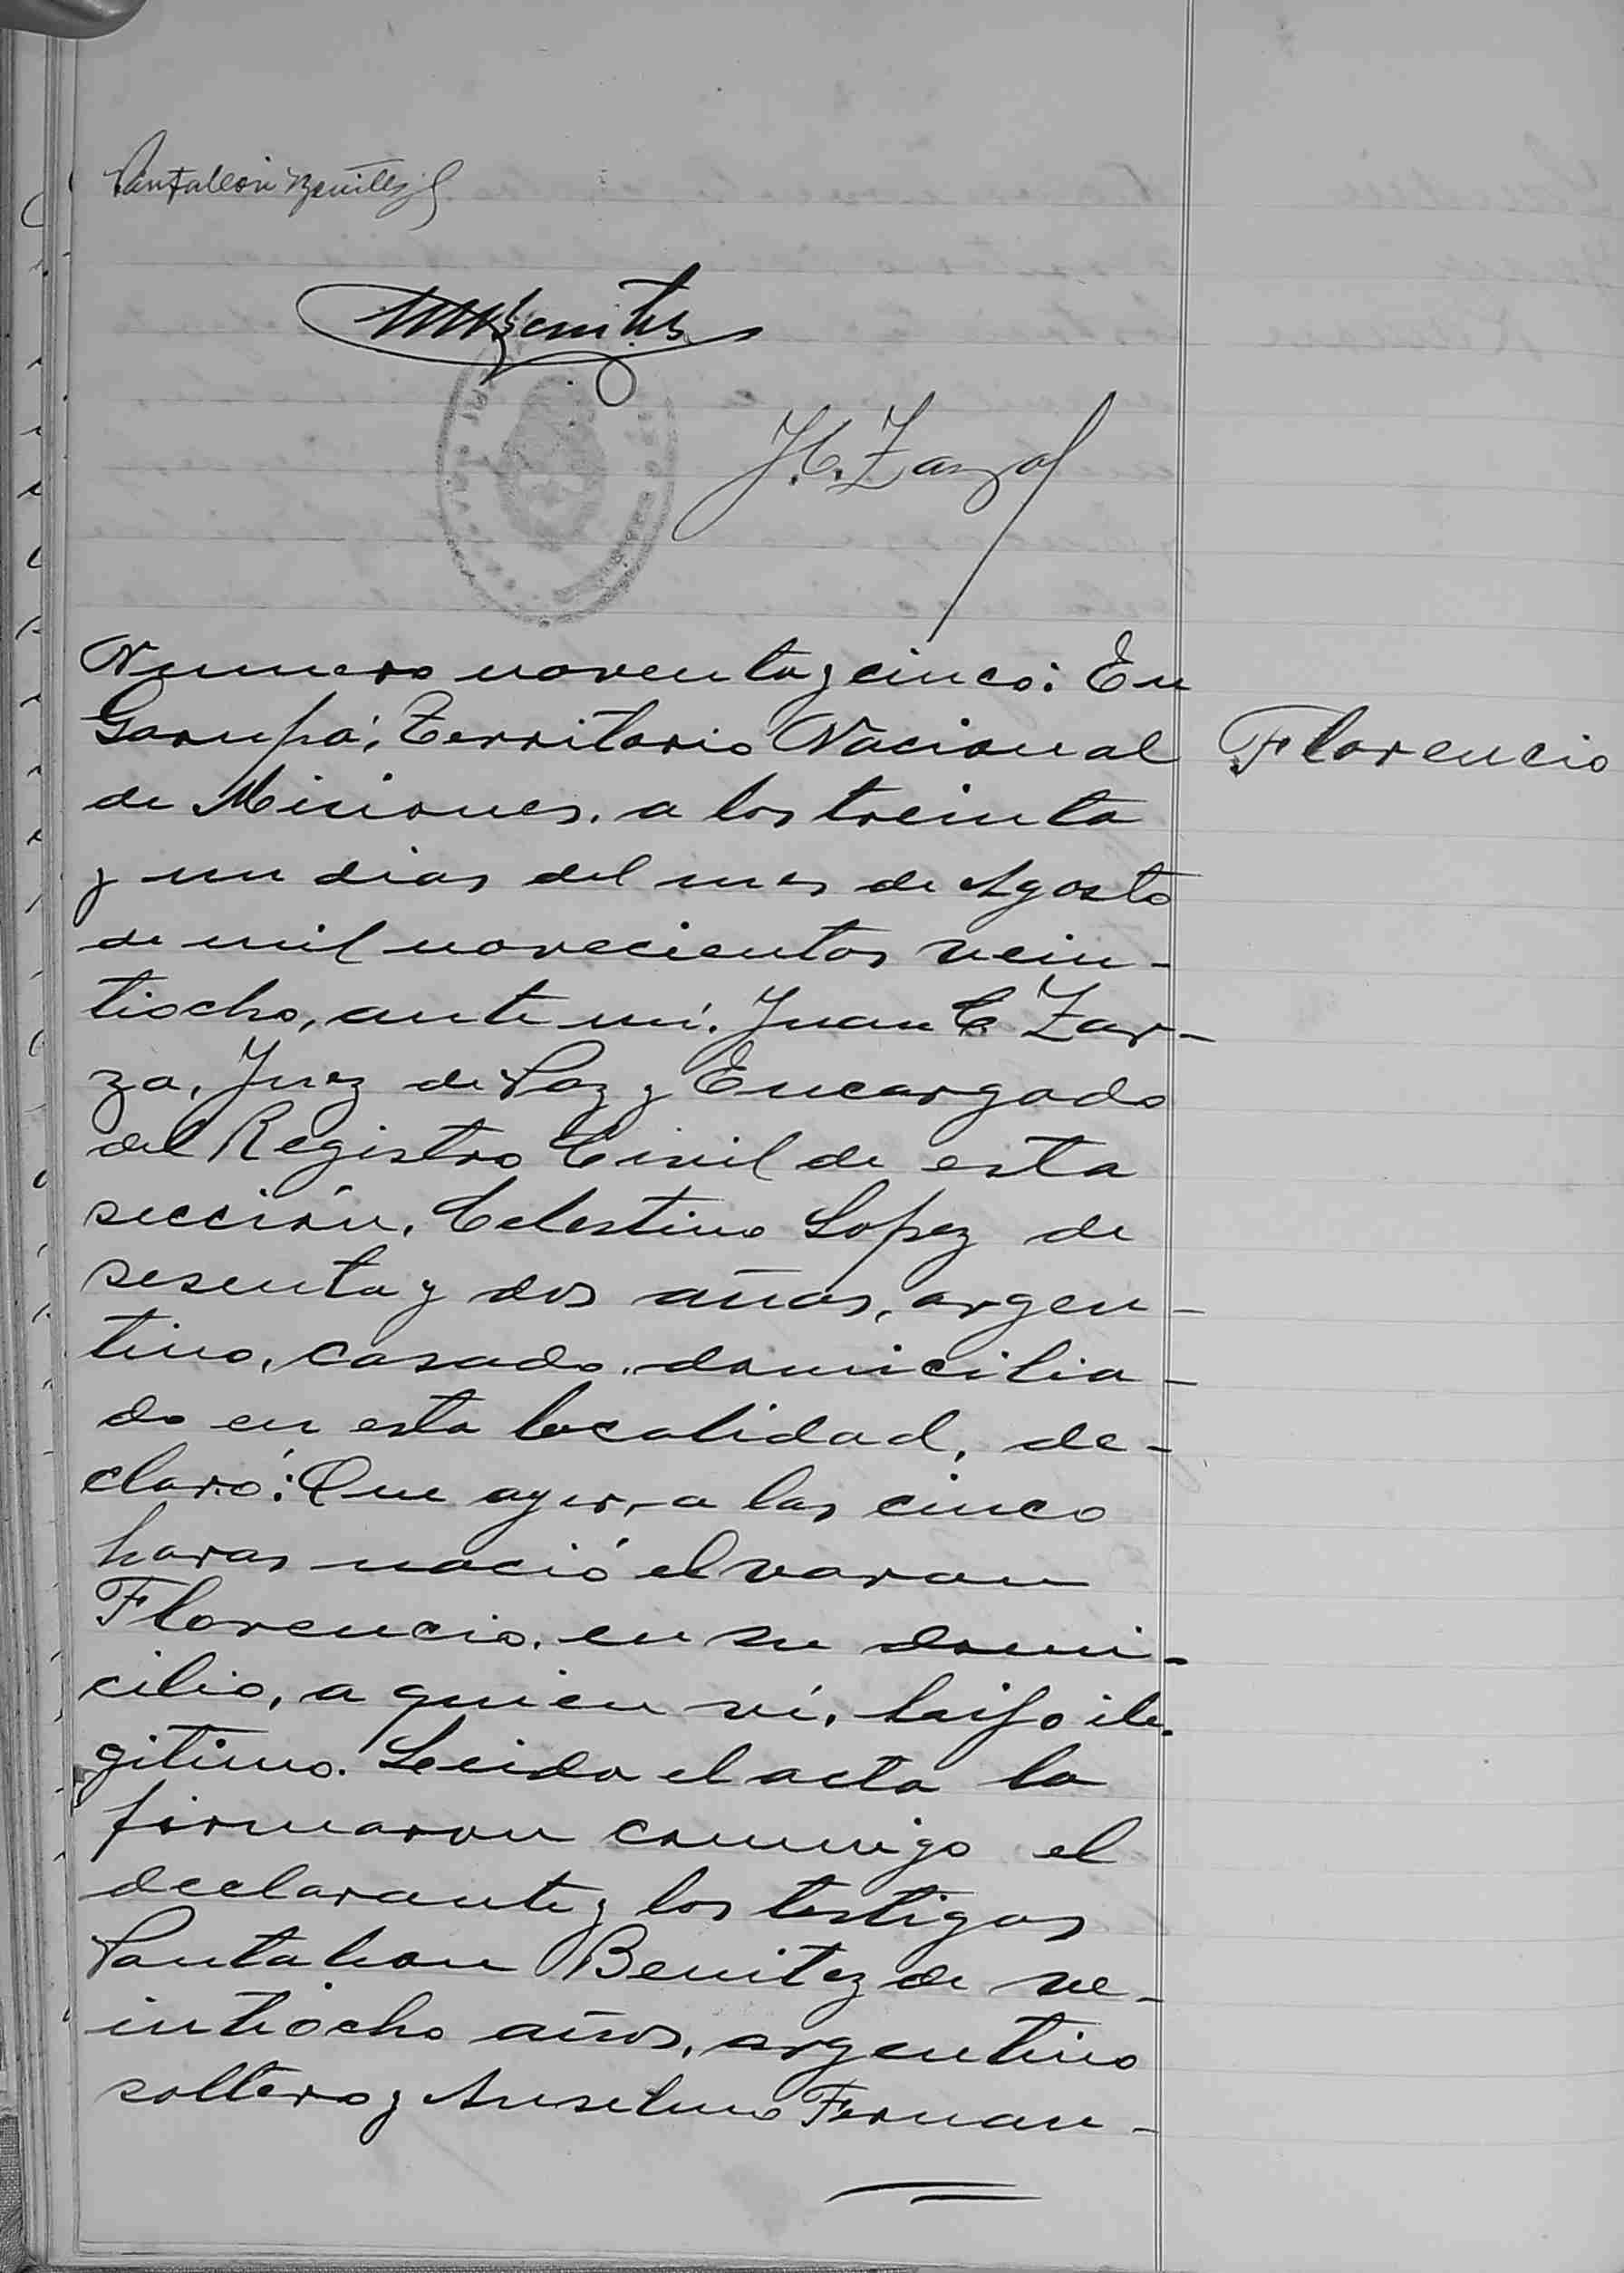 Pantaleon Benitez
MBenitez
J.C. Zarza
Numero noventa y cinco: En
Garupá, Territorio Nacional
Florencio
de Misiones, a los treinta
y un dias del mes de Agosto
de mil novecientos vein-
tiocho, ante mí, Juan C Zar-
za, Juez de Paz y Encargado
del Registro Civil de esta
sección, Celestino Lopez de
sesenta y dos años, argen-
tino, casado, domicilia-
do en esta localidad, de-
claró: Que ayer, a las cinco
horas nació el varon
Florencio, en su domi-
cilio, a quien ví, hijo ile-
gitimo. Leida el acta la
firmaron conmigo el
declarante y los testigos
Pantaleon Benitez de ve-
intiocho años, argentino
soltero y Anselmo Fernan-